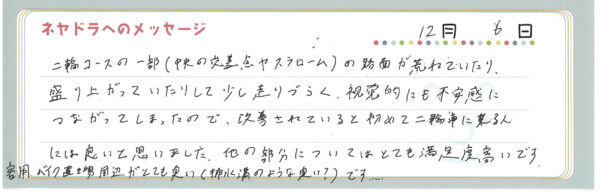 ネヤドラへのメッセージ
12月 6日
二輪コースの一部(中央の交差点やスラローム)の路面が荒れていたり、
盛り上がっていたりして少し走りづらく、視覚的にも不安感に
つながってしまったので、改善されていると初めて二輪車に乗る人
には良いと思いました。他の部分についてはとても満足度高いです。
客用バイク置き場周辺がとても臭い(排水溝のような臭い?)です....